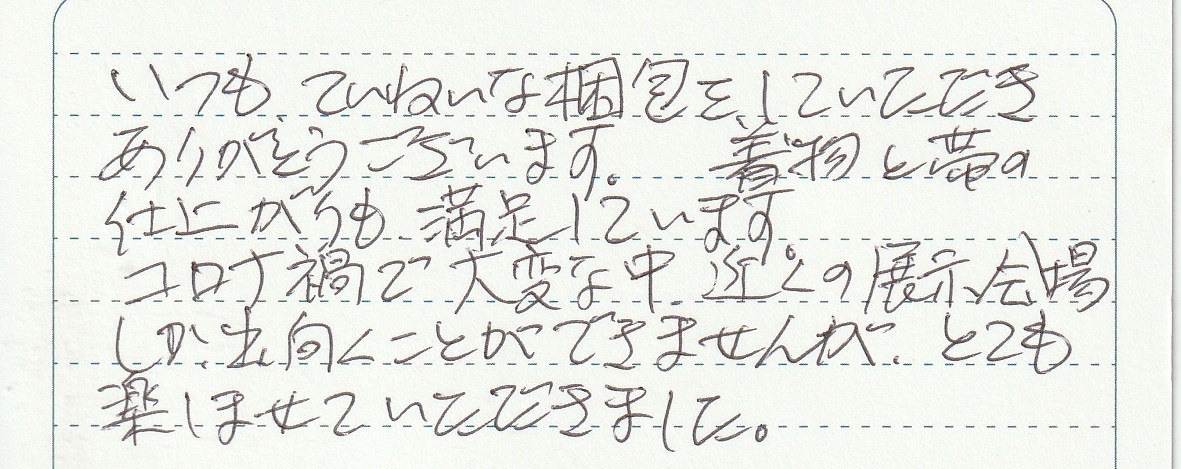 いつも、ていねいな梱包を、していただき
ありがとうございます。 着物と帯の
仕上がりも、満足しています。
コロナ禍で大変な中、近くの展示会場
しか、出向くことができませんが、とても
楽しませていただきました。